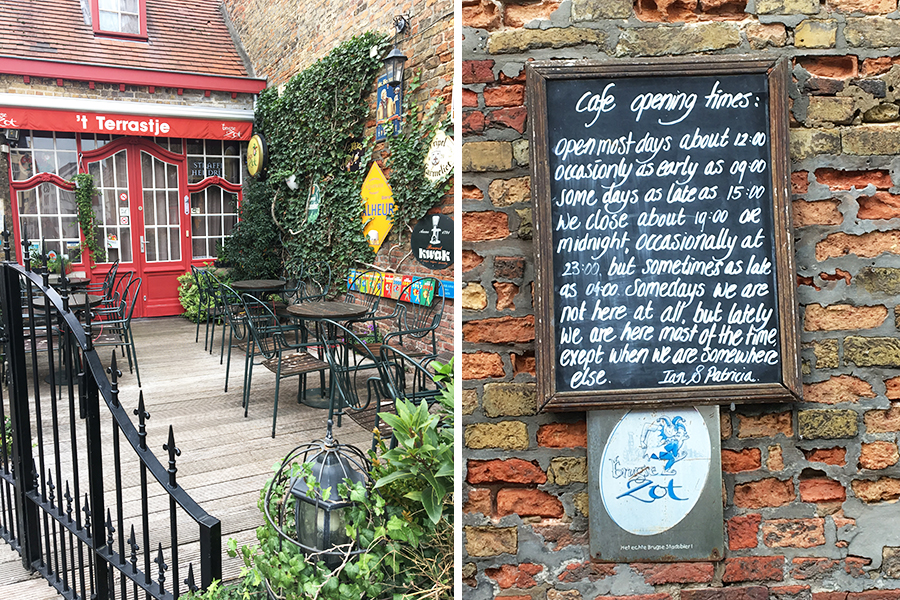 't Terrastje
Brugse
Zot
STAFFE
HENDRIK
ALHEUR
kwak
Cafe opening times:
open most days about 12:00
occasionly as early as 09:00
some days as late as 15:00
we close about 19:00 or
midnight, occasionally at
23:00, but sometimes as late
as 04:00. Somedays we are
not here at all, but lately
we are here most of the time,
exept when we are somewhere
else. Ian & Patricia.
Brugse
Zot
Het echte Brugse Stadsbier!